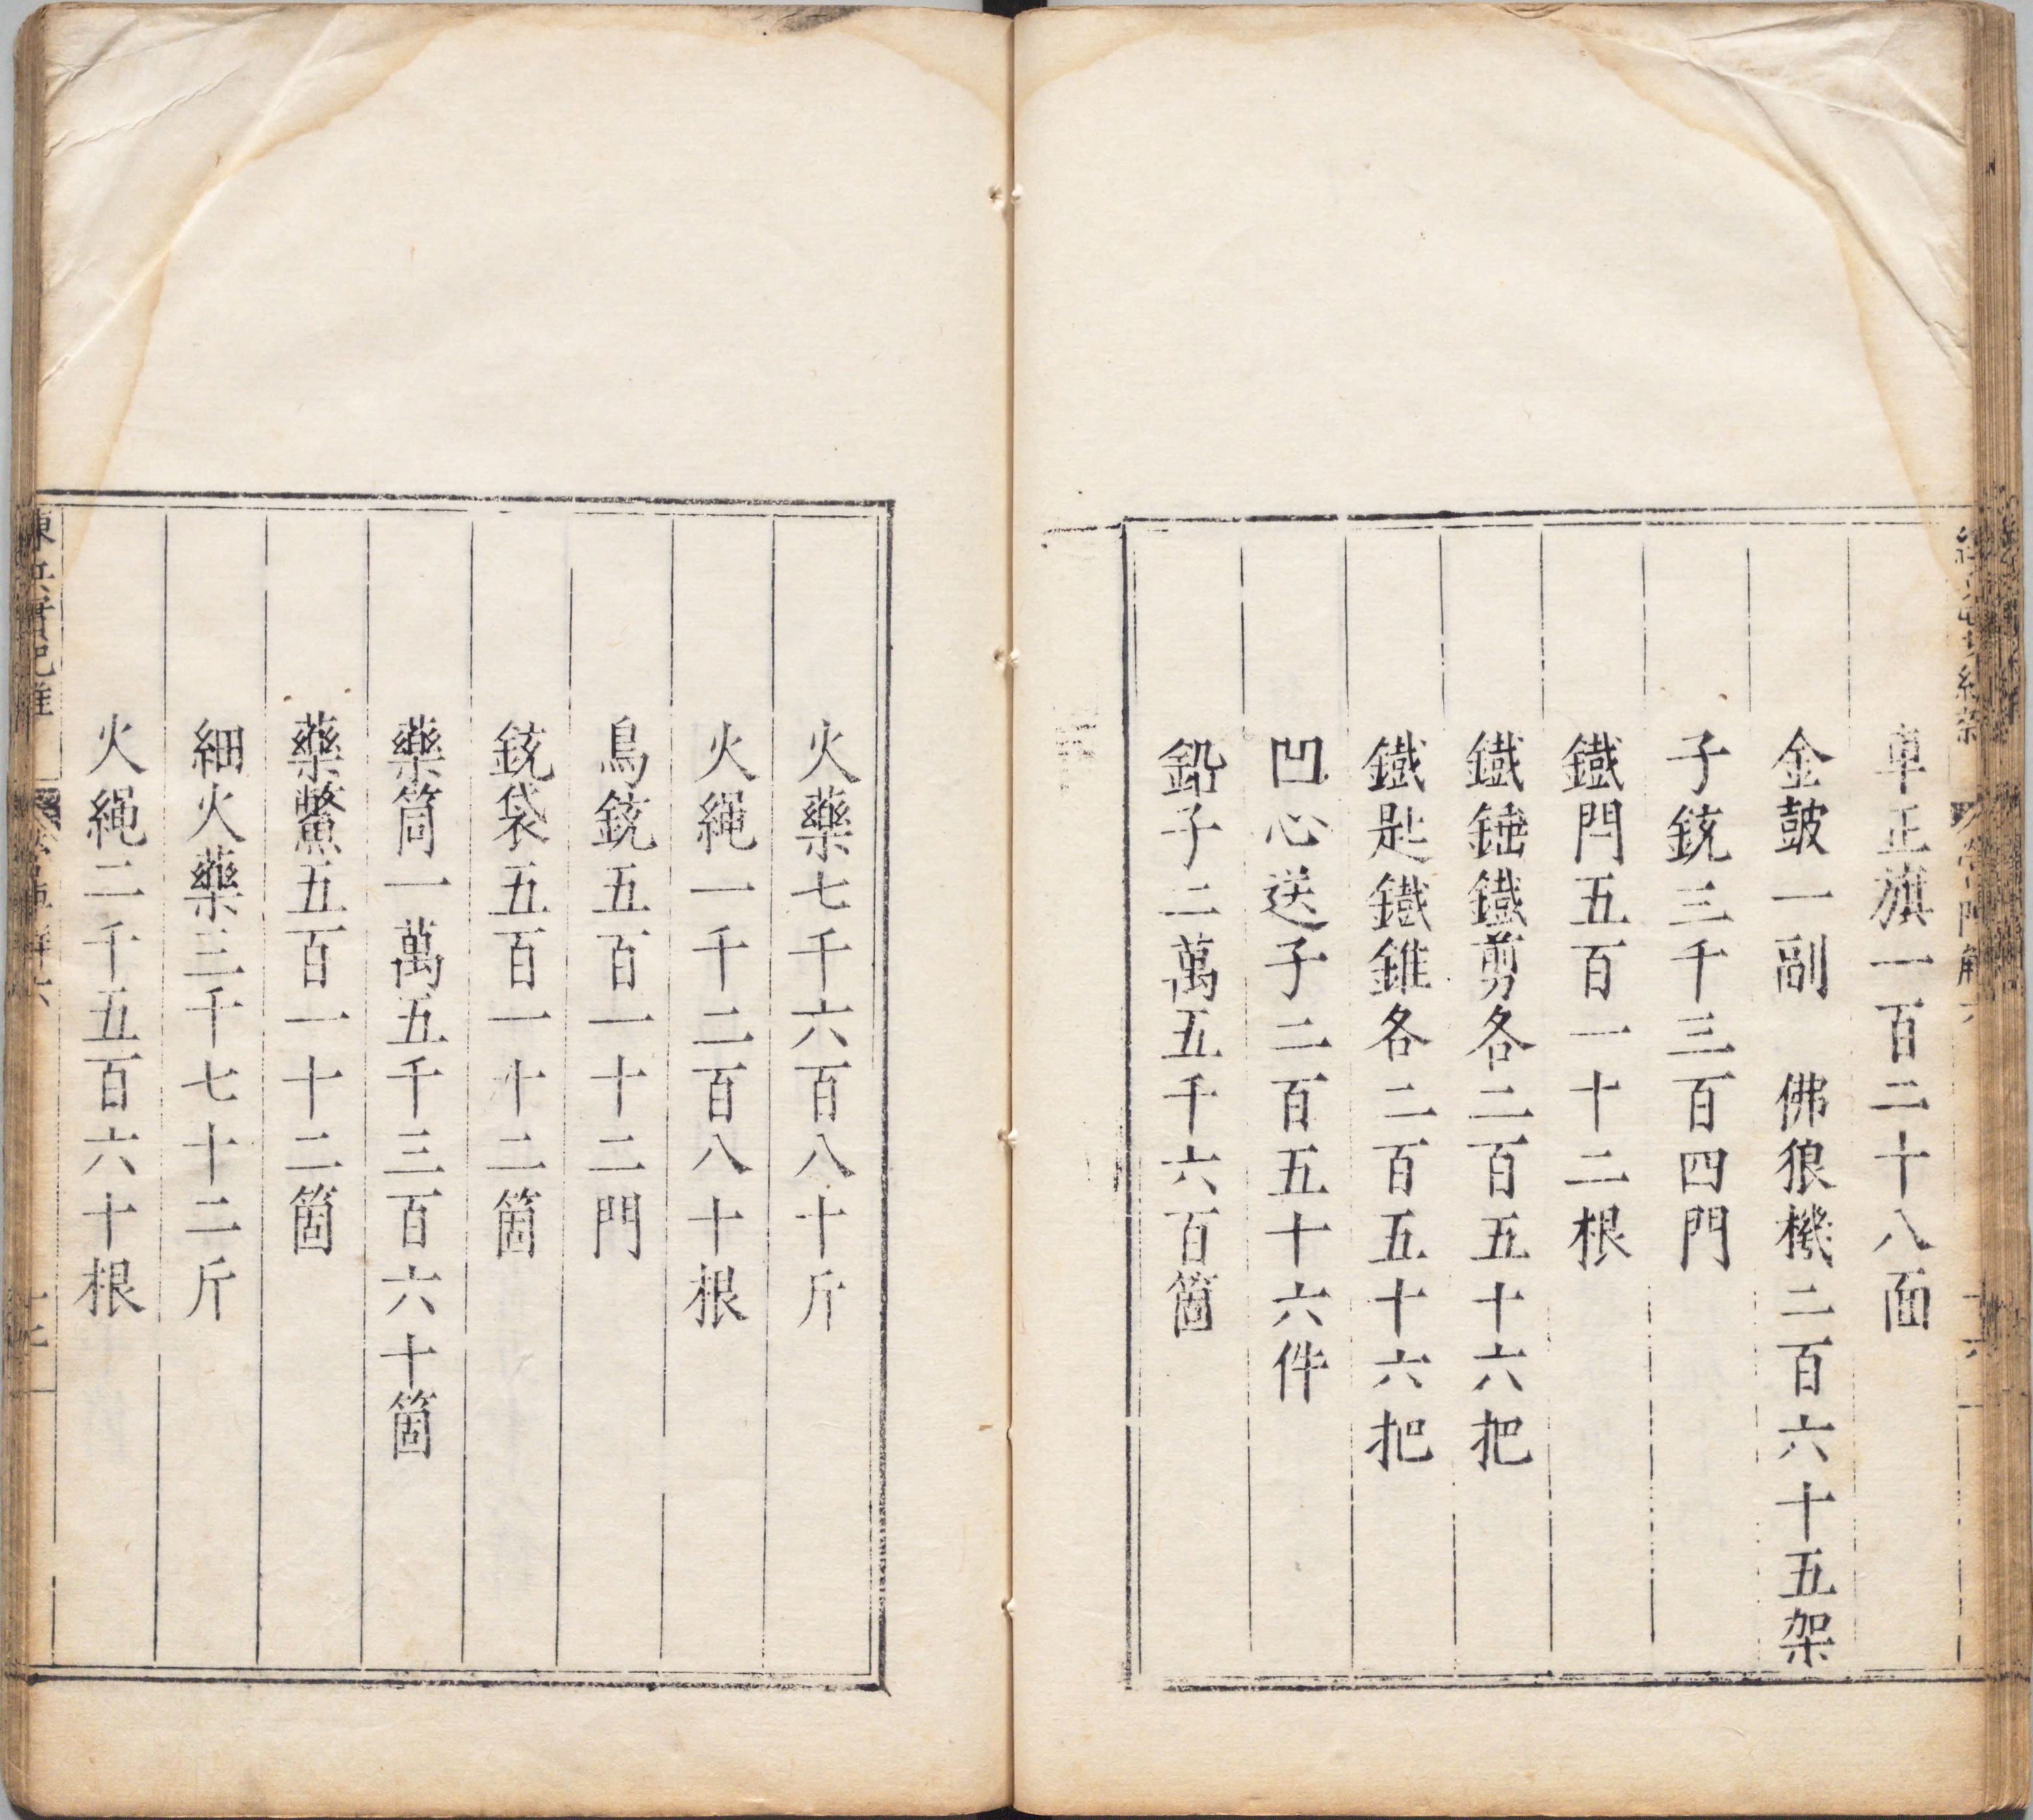 車正旗一百二十八面
金皷一副　佛狼機二百六十五架
子銃三千三百四門
鐵閂五百一十二根
鐵錘鐵剪各二百五十六把
鐵匙鐵錐各二百五十六把
凹心送子二百五十六件
鉛子二萬五千六百箇
火藥七千六百八十斤
火繩一千二百八十根
鳥銃五百一十二門
銃袋五百一十二箇
藥筒一萬五千三百六十箇
藥鱉五百一十二箇
細火藥三千七十二斤
火繩二千五百六十根